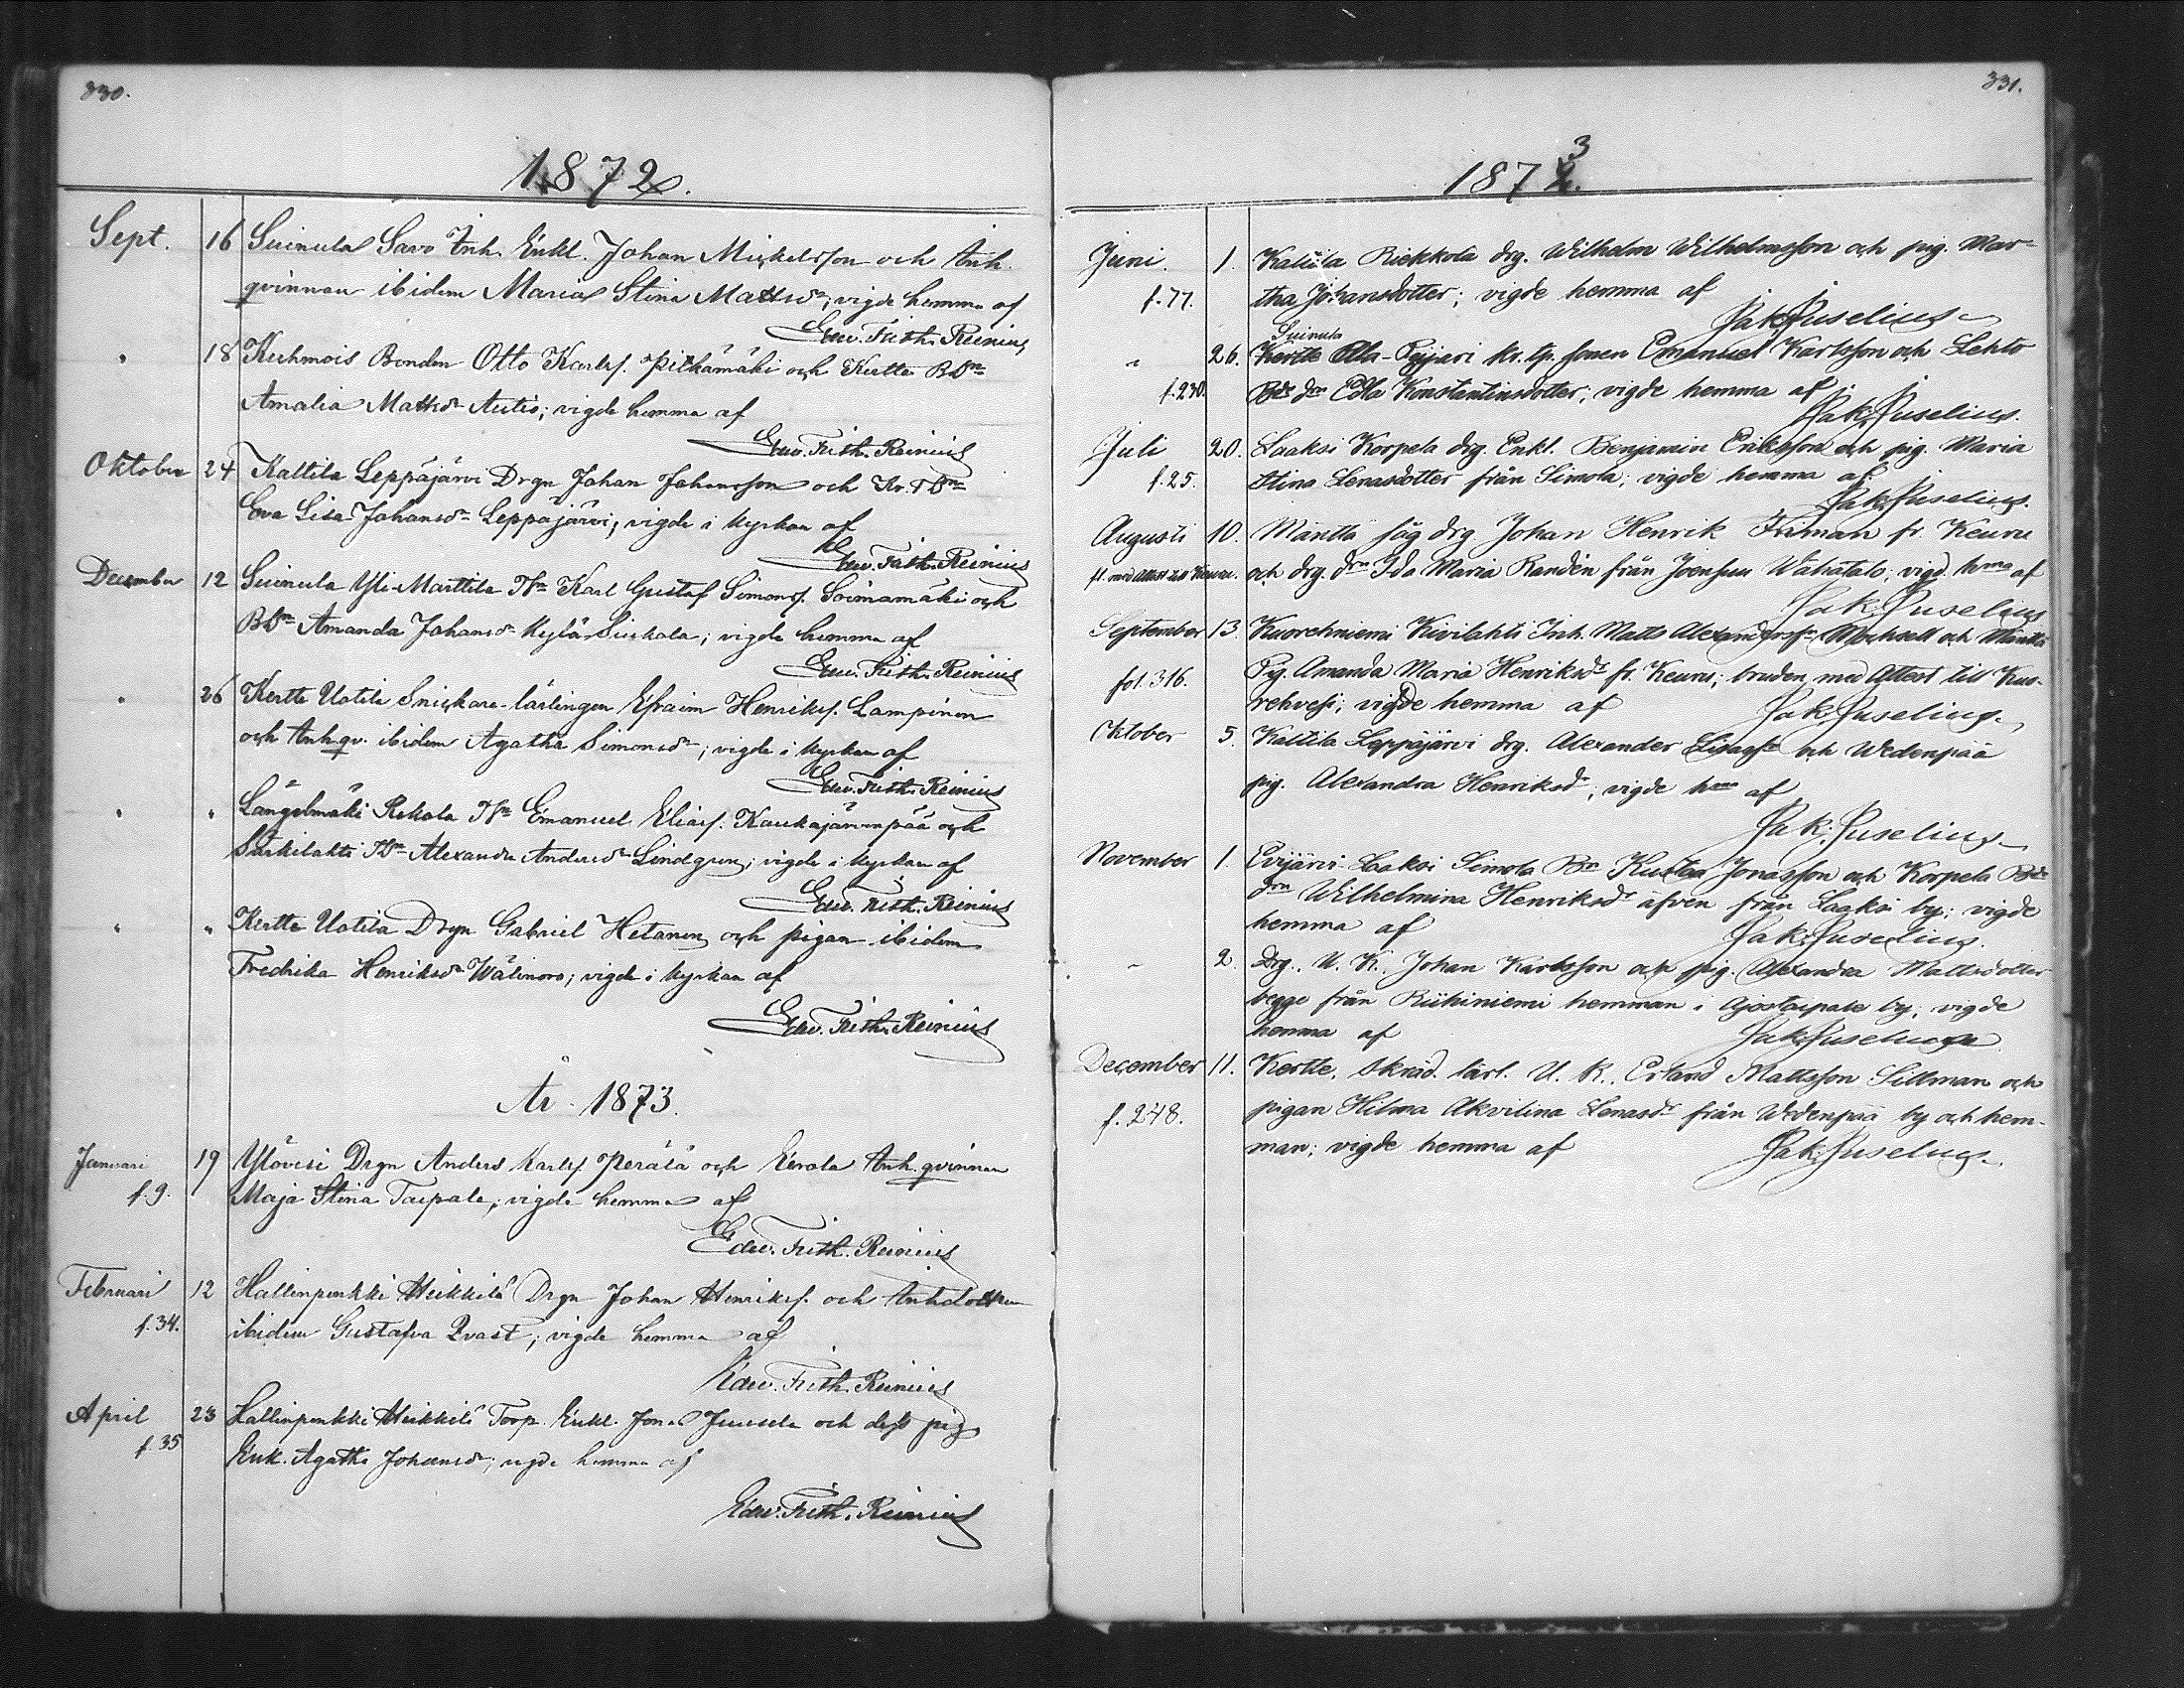 330.
1872.
Sept. 16 Suinula Savo Inh. Enkl. Johan Mickelsson och Inh.
qvinnan ibidem Maria Stina Mattsdr; vigde hemma af
Edw. Frith. Reinius
" 18 Kuhmois Bonden Otto Karlsf. Pitkämäki och Kertte BDn
Amalia Mattsdr Autio; vigde hemma af
Edw. Frith. Reinius
Oktober 24 Kaltila Leppäjärvi Drgn Johan Johansson och Kr. TDn
Eva Lisa Johansdr Leppäjärvi, vigde i kyrkan af
Edw. Frith. Reinius
December 12 Suinula Yli-Marttila Tn Karl Gustaf Simonsf. Soimamäki och
BDn Amanda Johansdr Kylä; vigde hemma af
Edw. Frith. Reinius
" 26 Kertte Uotila Snickare-lärlingen Efraim Henriksf. Lampinen
och Inh.qv. ibidem Agatha Simonsdr; vigde i kyrkan af
Edw. Frith. Reinius
" " Längelmäki Rekola Tn Emanuel Eliasf. Kaukajärvenpää och
Särkilahti TDn Alexandra Andersdr Lindgren; vigde i kyrkan af
Edw. Frith. Reinius
" " Kertte Uotila Drgn Gabriel Hetanen och pigan ibidem
Fredrika Henriksdr Wälinoro; vigde i kyrkan af
Edw. Frith. Reinius
År 1873.
Januari 19 Ylövesi Drgn Anders Karlsf. Perälä och Eerola Inh.qvinnan
f. 9. Maja Stina Taipale; vigde hemma af
Edw. Frith. Reinius
Februari 12 Hallinpenkki Heikkilä Drgn Johan Henriksf. och Inhdottren
f. 34. ibidem Gustafva Qvast; vigde hemma af
Edw. Frith. Reinius
April 23 Hallinpenkki Heikkilä Torp. Enkl. Jonas Juusela och dess pig
f. 35 Enk. Agatha Johansdr; vigde hemma af
Edw. Frith. Reinius
331.
1873
Juni. 1. Kaltila Riekkola drg. Wilhelm Wilhelmsson och pig. Mar=
f. 77. tha Johansdotter; vigde hemma af
Jak. Juselius
Suinula
" 26. Kertte Ala-Pyijari kr. tp. sonen Emanuel Karlsson och Lehto
f. 230. Bde drn Edla Konstantinsdotter; vigde hemma af
Jak. Juselius.
Juli 20. Laaksi Korpela drg. Enkl. Benjamin Eriksson och pig. Maria
f. 25. Stina Lenasdotter från Simola; vigde hemma af
Jak. Juselius.
Augusti 10. Mänttä såg drg. Johan Henrik Friman fr. Keuru
fl. med Attest till Keuru. och drg. drn Ida Maria Randén från Joensuu Wähätalo; vigd. hma af
Jak. Juselius
September 13. Kuorehniemi Kivilahti Inh. Matts Alexandersfn och Mänttä
fol. 316. Pig. Amanda Maria Henriksdr fr. Keuru; bruden med Attest till Kuo-
rehvesi; vigde hemma af Jak. Juselius.
Oktober 5. Kaltila Leppäjärvi drg. Alexander Lisasfn och Wedenpää
pig. Alexandra Henriksdr; vigde hma af
Jak. Juselius
November 1. Eväjärvi Laaksi Simola Bn Kustaa Jonasson och Korpela Bde
drn Wilhelmina Henriksdr äfven från Laaksi by; vigde
hemma af Jak. Juselius.
" 2. Drg. U. K. Johan Karlsson och pig. Alexandra Mattsdotter
begge från Riihiniemi hemman i Ajostaipale by; vigde
hemma af Jak. Juselius
December 11. Kertte. Skräd. lärl. U. K. Erland Mattsson Sillman och
f. 248. pigan Hilma Akvilina Lenasdr från Wedenpää by och hem-
man; vigde hemma af Jak. Juselius.